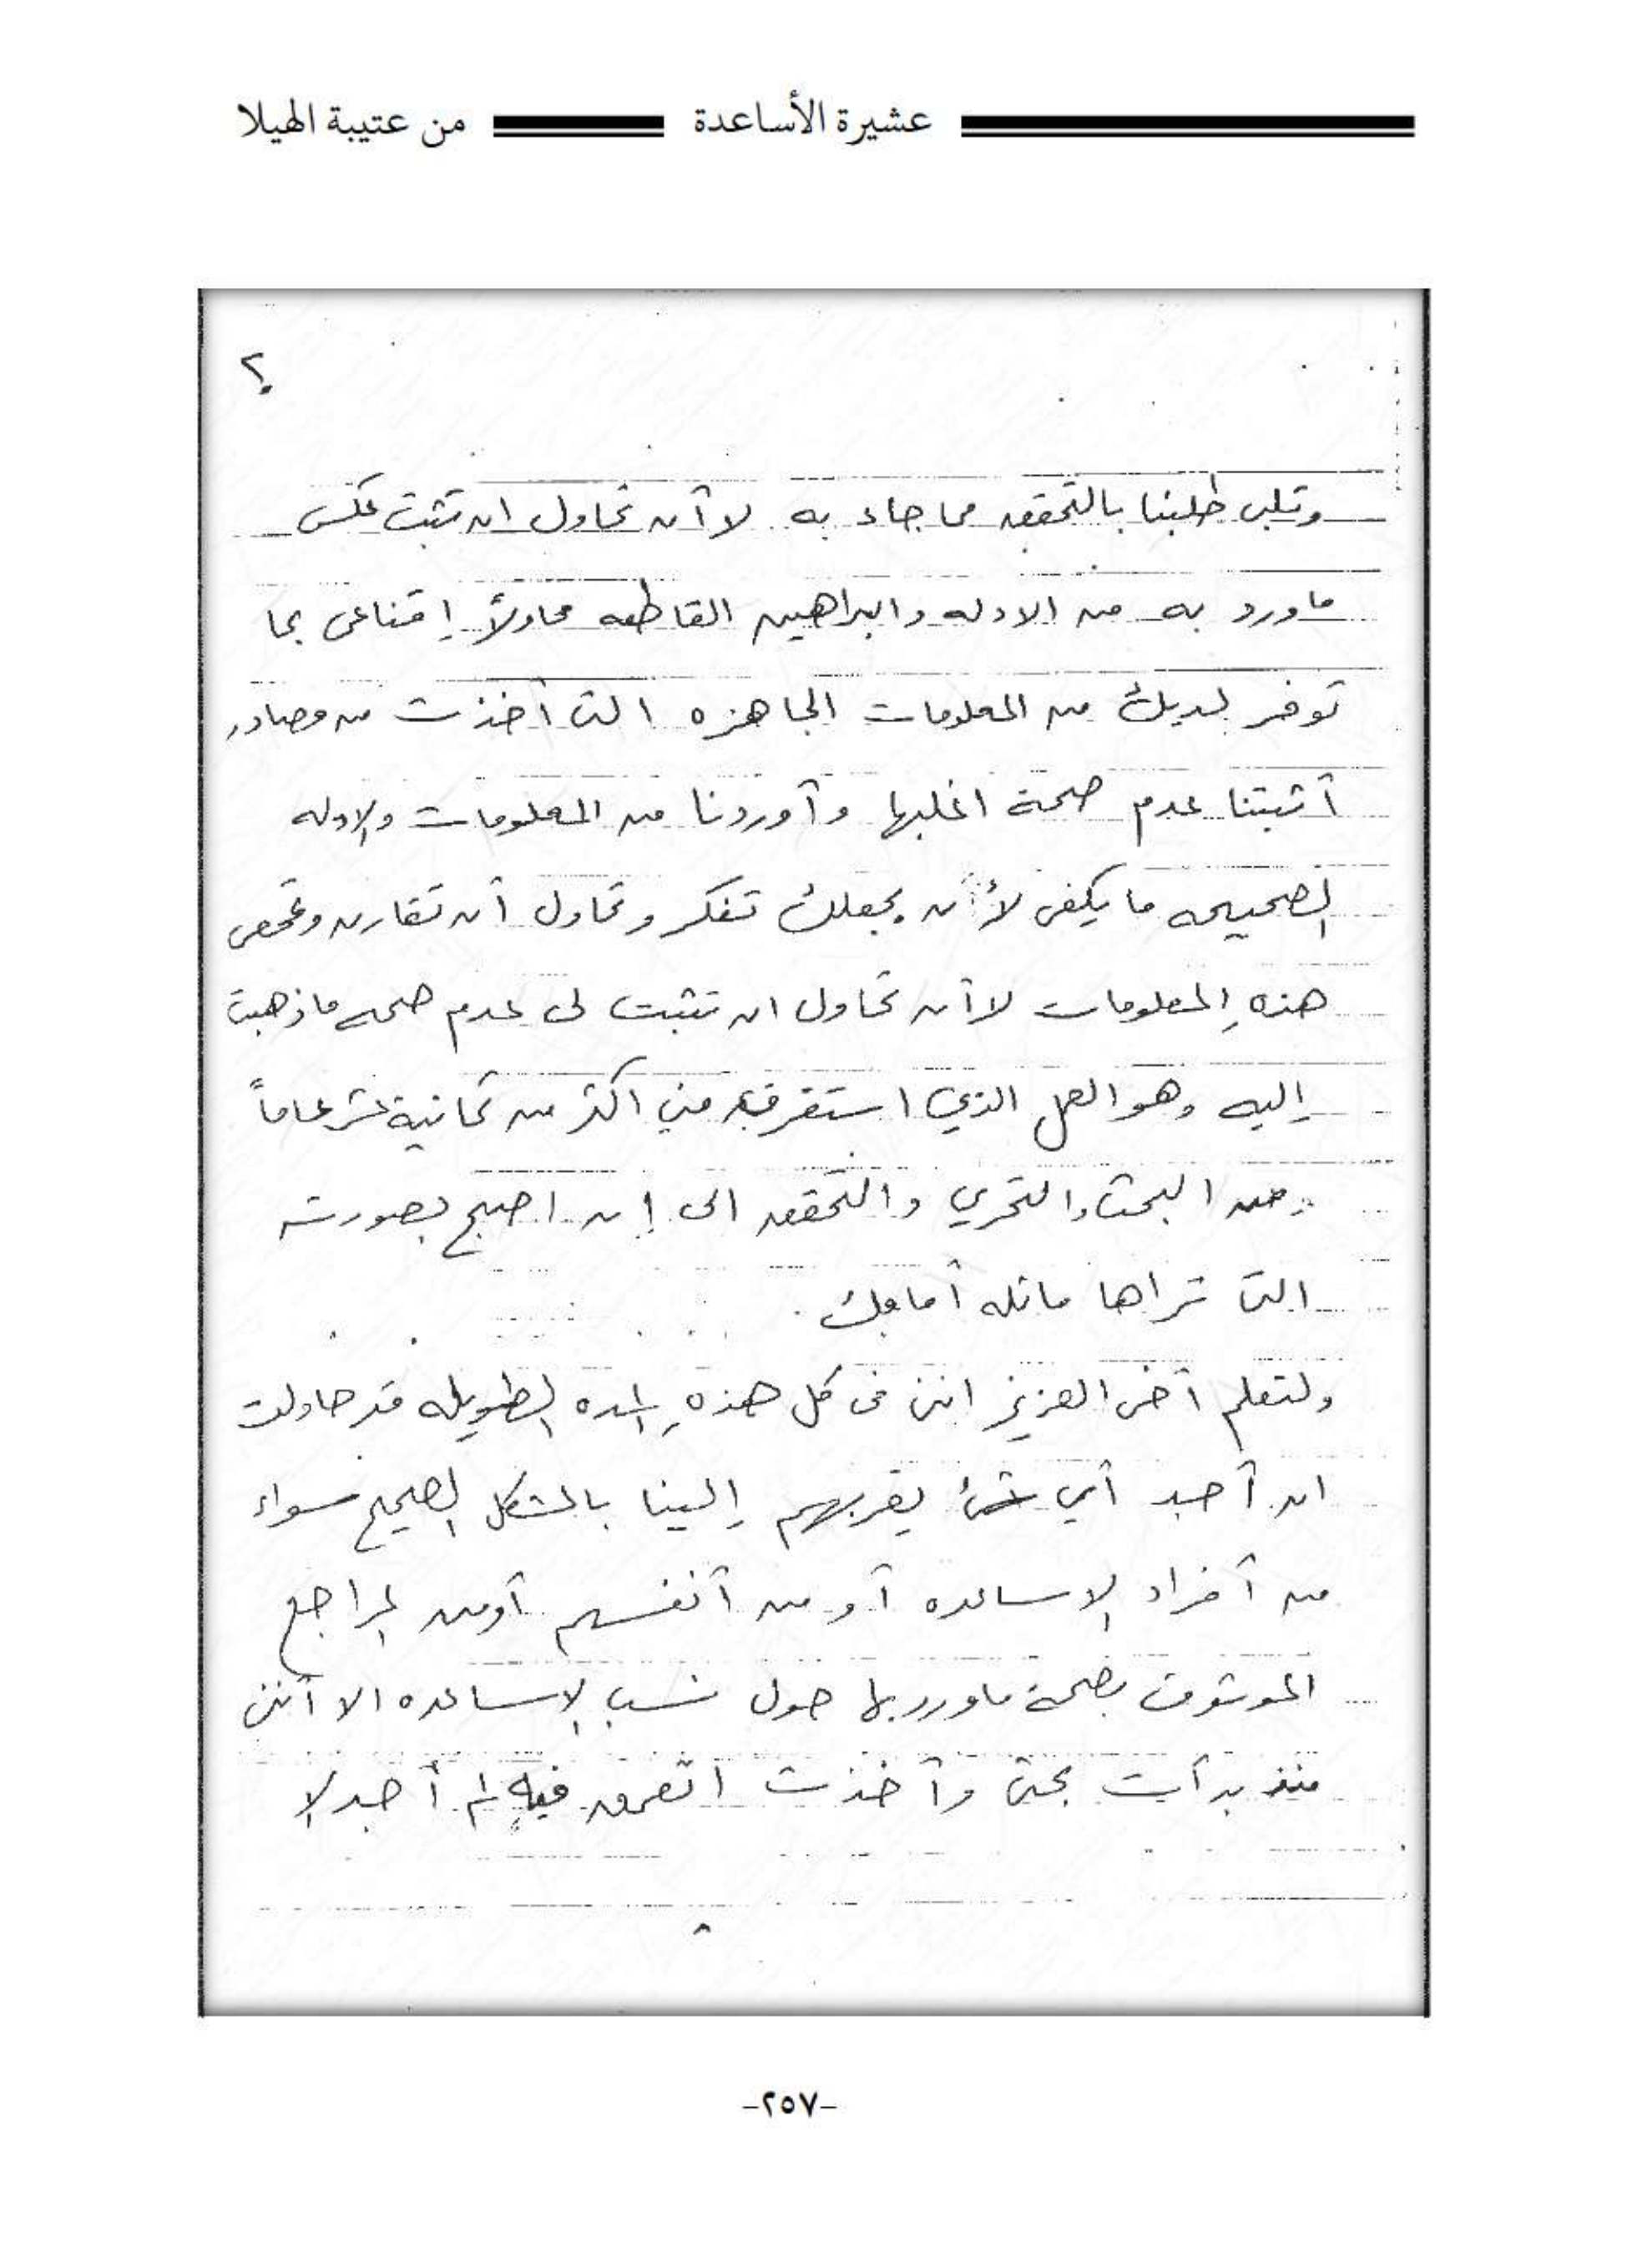 عشيرة الأساعدة من عتيبة الهيلا
٢
وتلبى طلبنا بالتحقق مما جاء به لا أن تحاول ان تثبت عكس
ماورد به من الادله والبراهين القاطعه محاولاً إقناعى بما
توفر لديك من المعلومات الجاهزه التى أخذت من مصادر
أثبتنا عدم صحة اغلبها وأوردنا من المعلومات والادله
الصحيحه ما يكفى لأن يجعلك تفكر وتحاول أن تقارن وتمحص
هذه المعلومات لا أن تحاول ان تثبت لى عدم صحه ماذهبت
إليه وهو العمل الذي استغرق مني اكثر من ثمانية عشر عاماً
من البحث والتحري والتحقق الى إن اصبح بصورته
التى تراها ماثله أمامك .
ولتعلم أخى العزيز اننى فى كل هذه المده الطويله قد حاولت
ان أجد أي شئ يقربهم إلينا بالشكل الصحيح سواء
من أفراد الاساعده أو من أنفسهم أومن المراجع
الموثوق بصحة ماورد بها حول نسب الاساعده الا أننى
منذ بدأت بحثى وأخذت اتعمق فيه لم أجد لا
-٢٥٧-